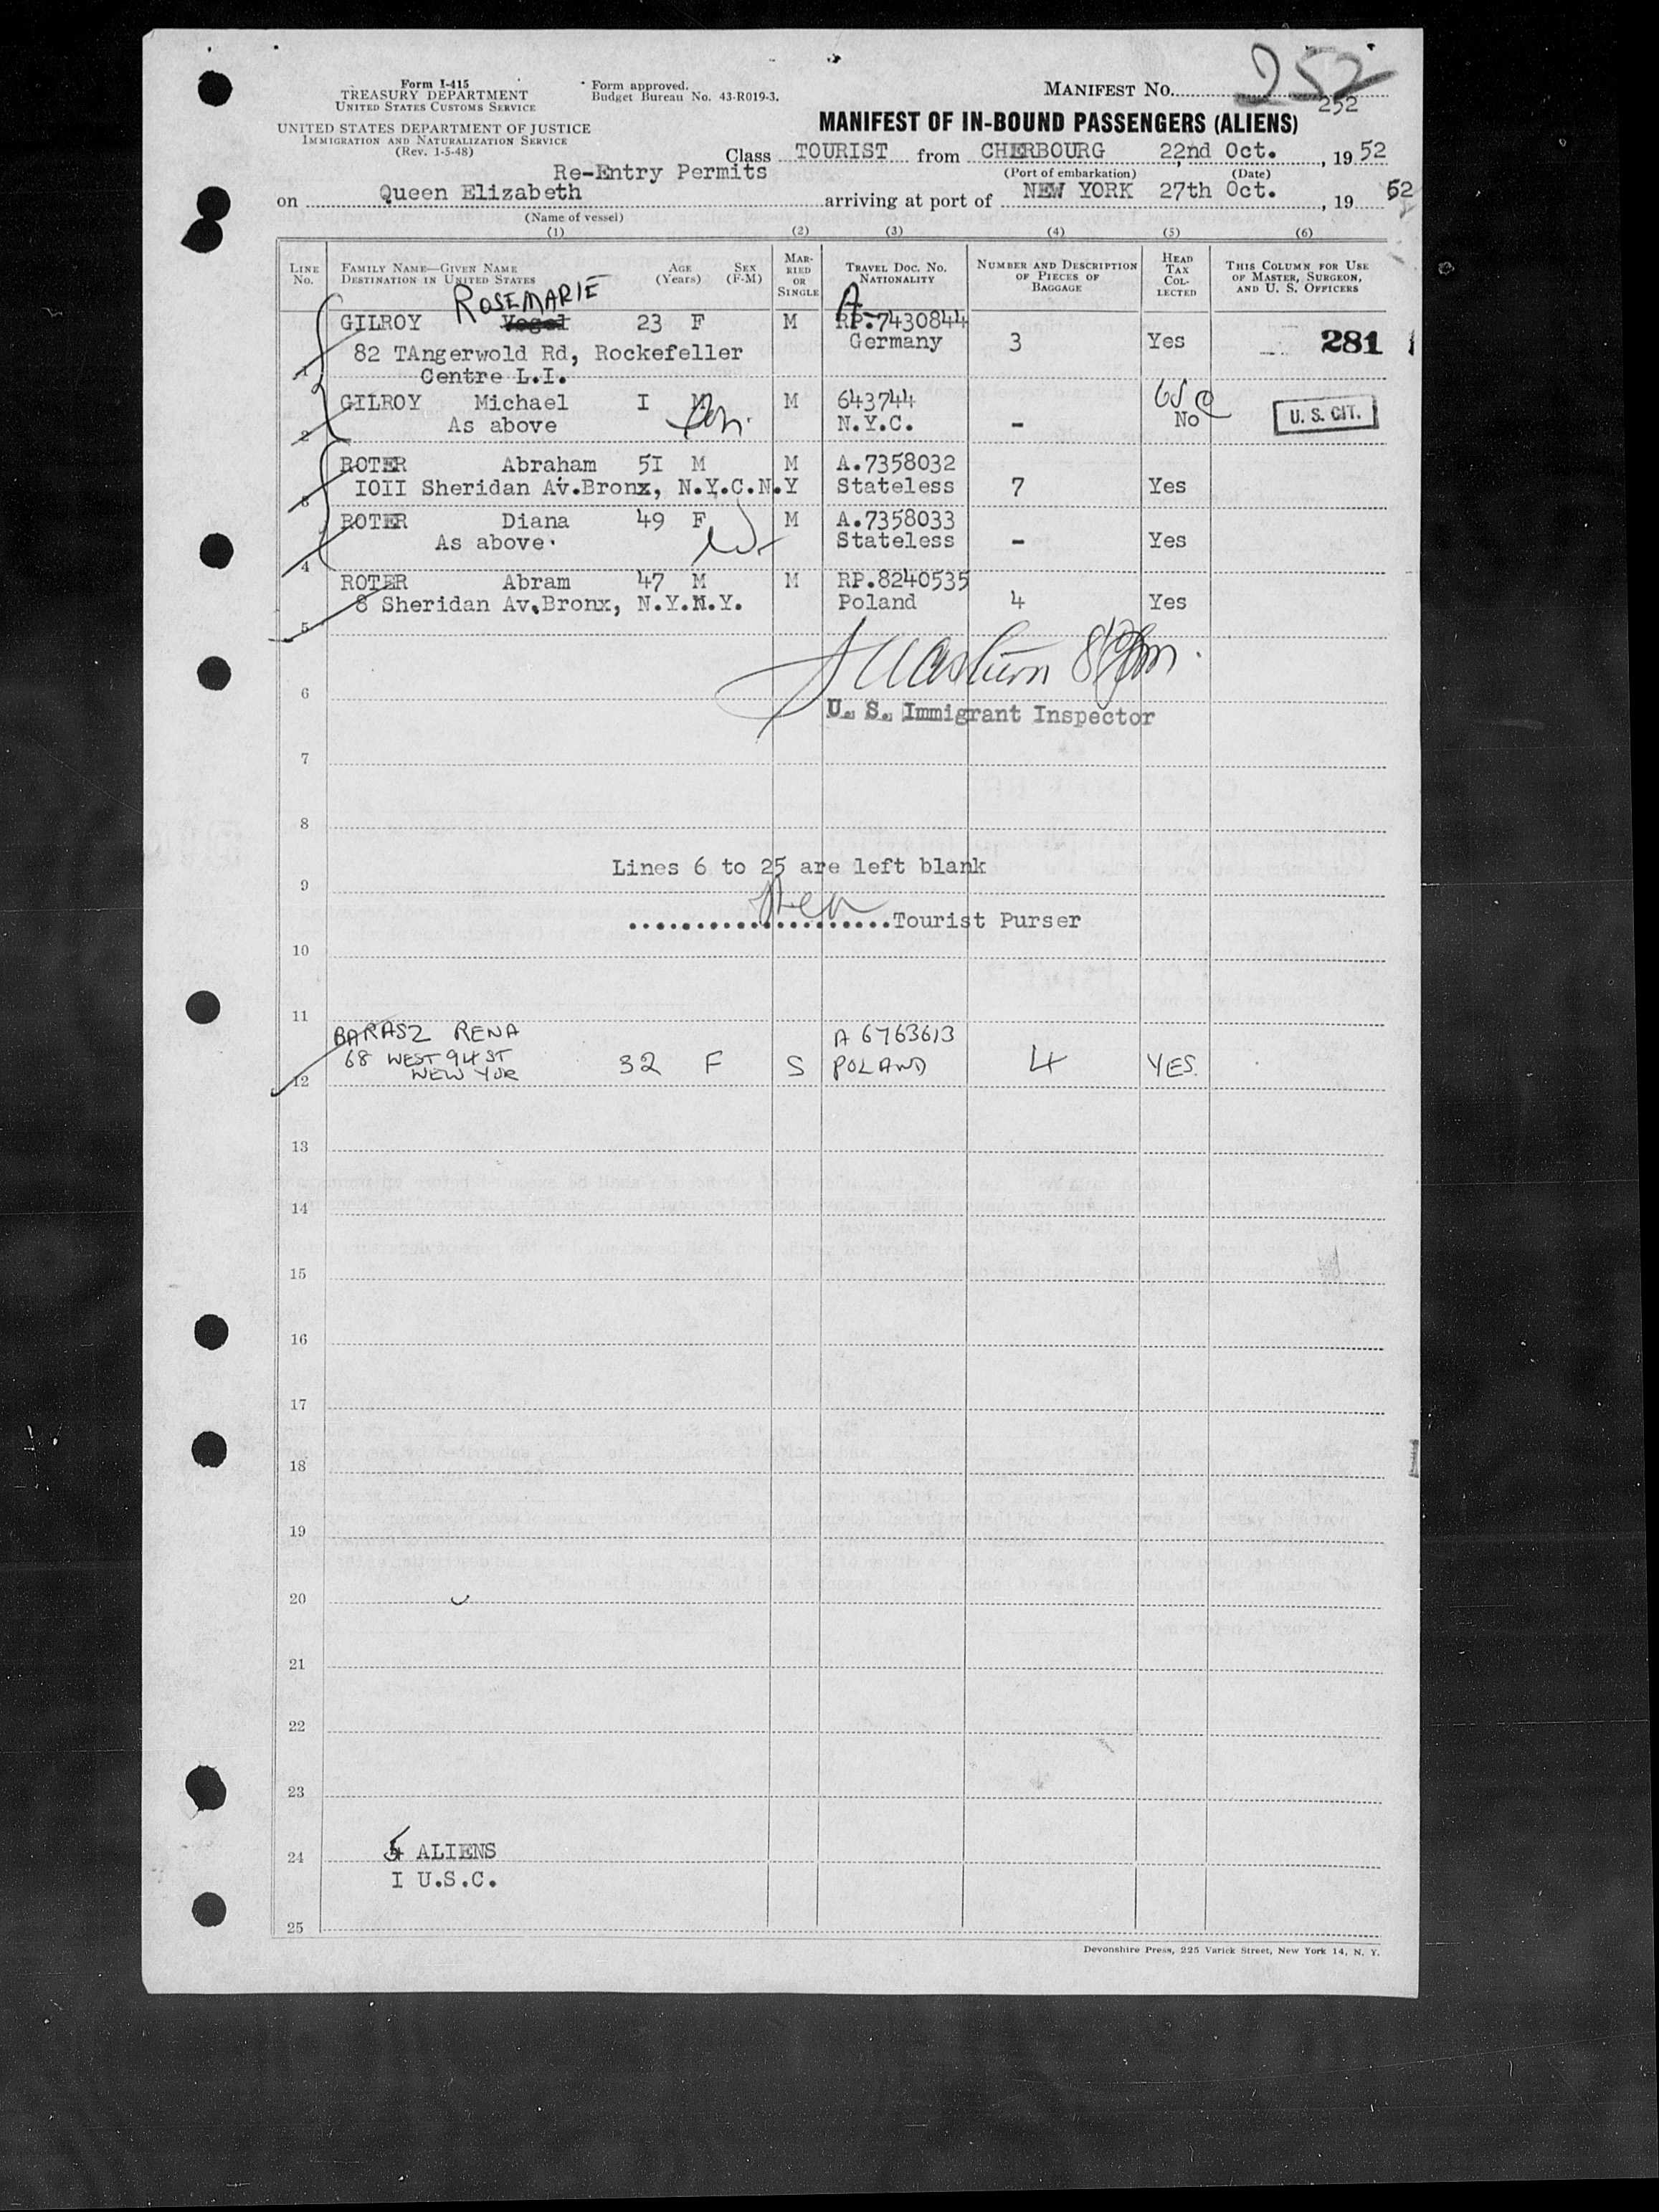 Form I-415
TREASURY DEPARTMENT
UNITED STATES CUSTOMS SERVICE
UNITED STATES DEPARTMENT OF JUSTICE
IMMIGRATION AND NATURALIZATION SERVICE
(Rev. 1-5-48)
Form approved.
Budget Bureau No. 43-R019-3.
MANIFEST NO. 252
252
MANIFEST OF IN-BOUND PASSENGERS (ALIENS)
Class TOURIST from CHERBOURG 22nd Oct. , 19 52
Re-Entry Permits (Port of embarkation) (Date)
on Queen Elizabeth arriving at port of NEW YORK 27th Oct. , 19 52
(Name of vessel)
(1) (2) (3) (4) (5) (6)
LINE No. FAMILY NAME—GIVEN NAME DESTINATION IN UNITED STATES AGE (Years) SEX (F-M) MARRIED OR SINGLE TRAVEL DOC. NO. NATIONALITY NUMBER AND DESCRIPTION OF PIECES OF BAGGAGE HEAD TAX COLLECTED THIS COLUMN FOR USE OF MASTER, SURGEON, AND U. S. OFFICERS
ROSEMARIE A-
GILROY Vogel 23 F M RP.7430844
82 TAngerwold Rd, Rockefeller Germany 3 Yes 281
1 Centre L.I.
GILROY Michael I M M 643744 USC
2 As above N.Y.C. - No U. S. CIT.
ROTER Abraham 5I M M A.7358032
3 IOII Sheridan Av.Bronx, N.Y.C.N.Y Stateless 7 Yes
ROTER Diana 49 F M A.7358033
4 As above. Stateless - Yes
ROTER Abram 47 M M RP.8240535
5 8 Sheridan Av,Bronx, N.Y.N.Y. Poland 4 Yes
6
U. S. Immigrant Inspector
7
8
Lines 6 to 25 are left blank
9
....................Tourist Purser
10
11
BARASZ RENA A 6763613
68 WEST 94 ST 32 F S POLAND 4 YES.
12 NEW YOR
13
14
15
16
17
18
19
20
21
22
23
24 5 ALIENS
I U.S.C.
25
Devonshire Press, 225 Varick Street, New York 14, N. Y.